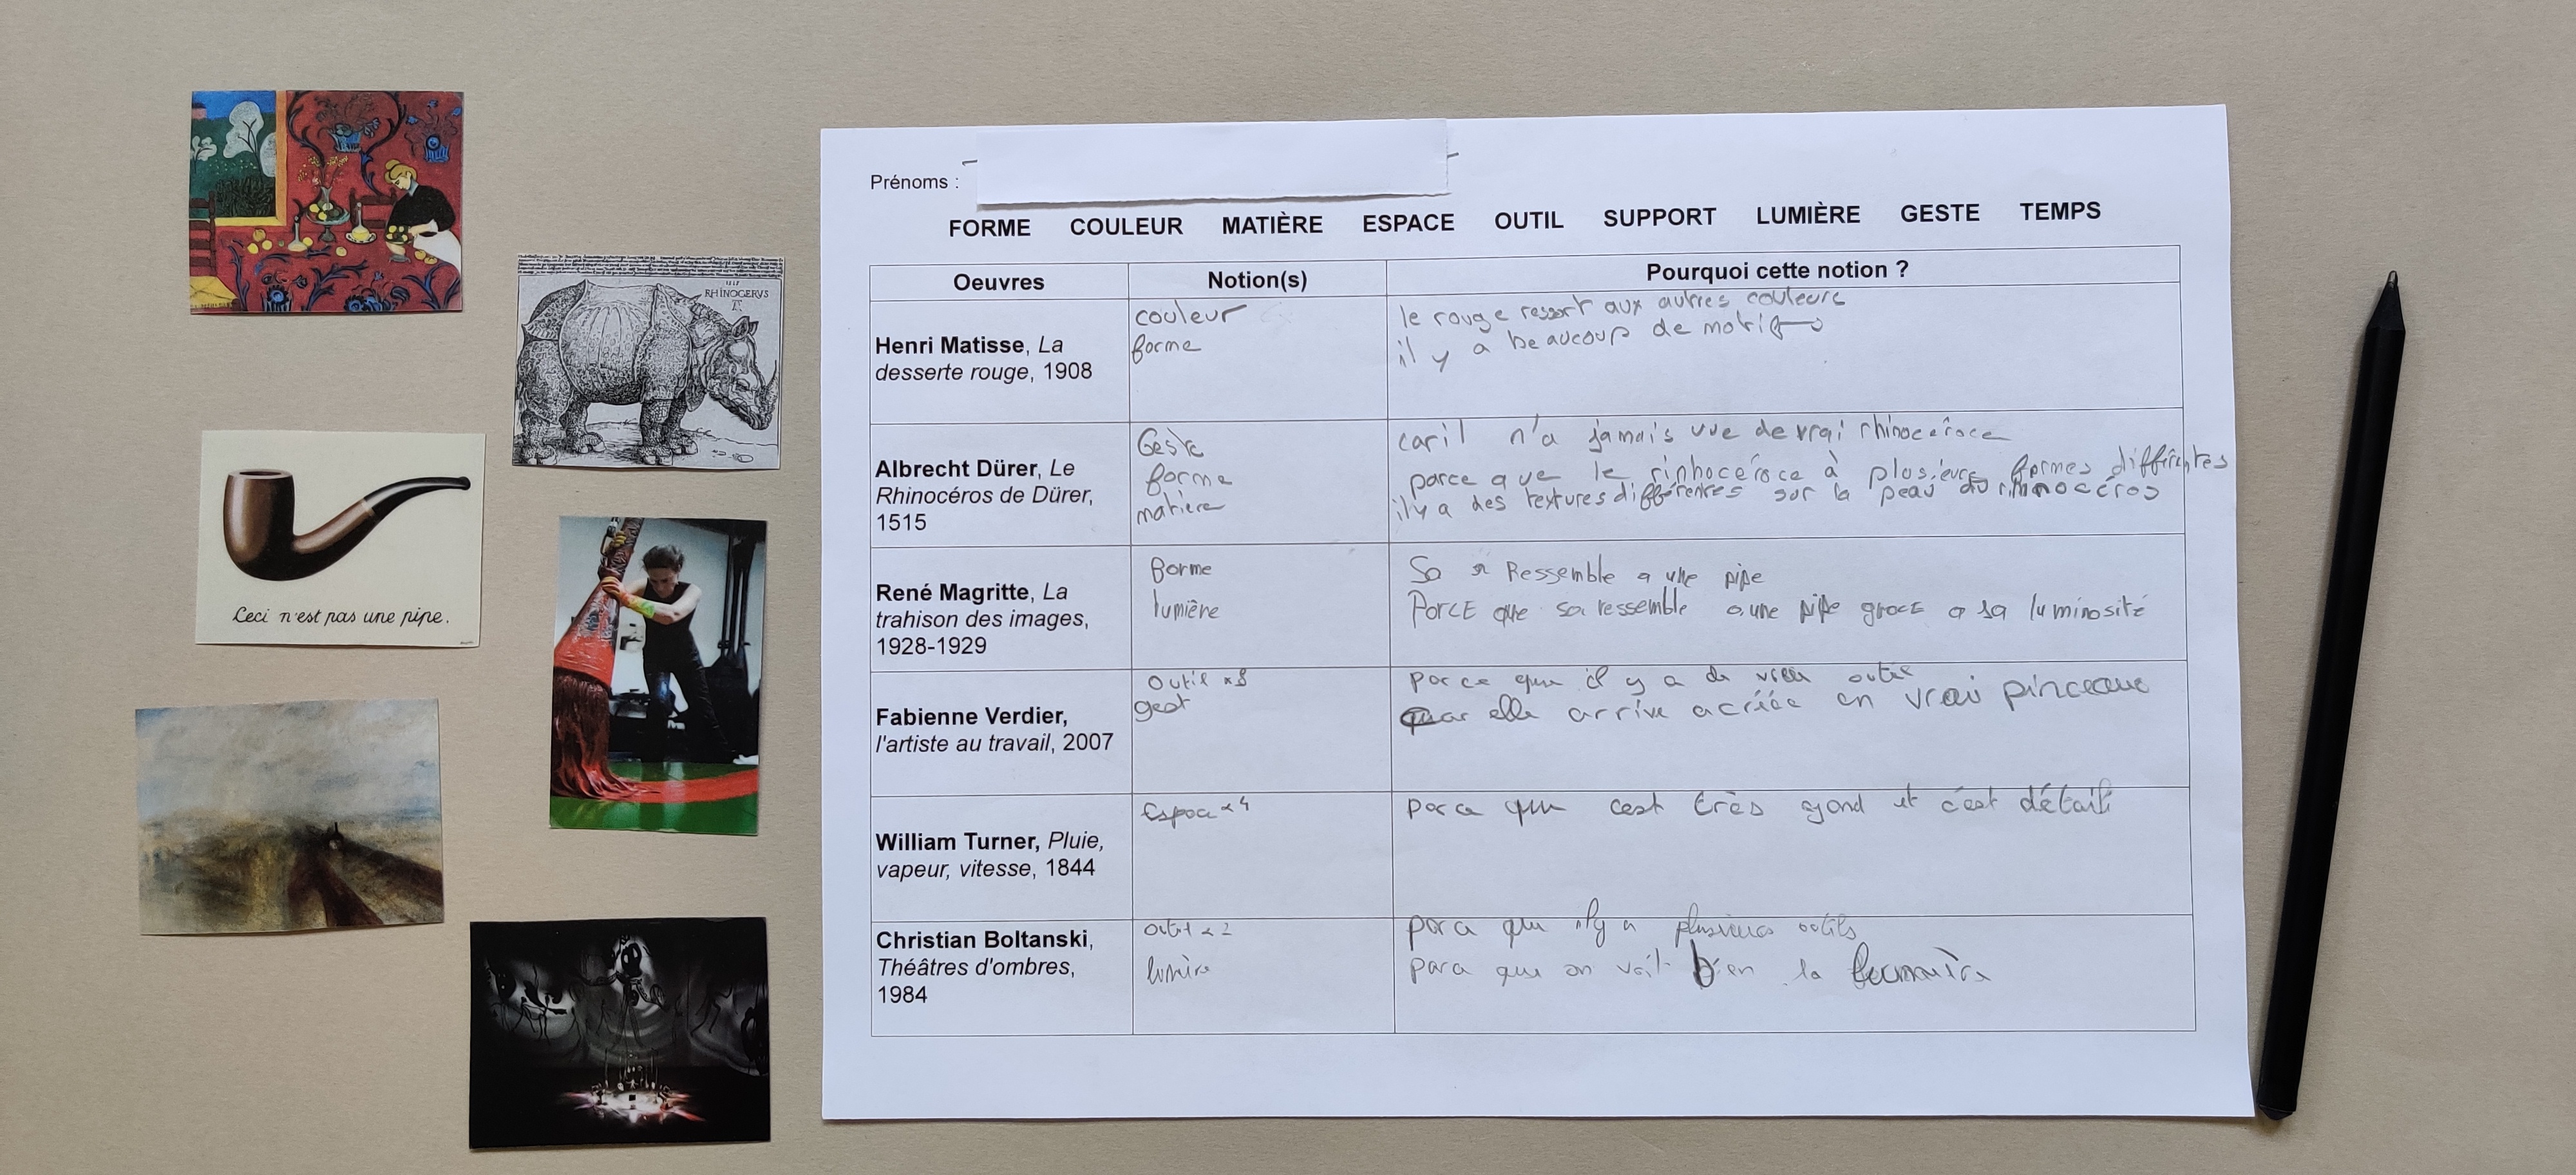 RHINOCERVS
Ceci n'est pas une pipe.
Prénoms :
FORME COULEUR MATIÈRE ESPACE OUTIL SUPPORT LUMIÈRE GESTE TEMPS
Oeuvres Notion(s) Pourquoi cette notion ?
Henri Matisse, La
desserte rouge, 1908
couleur
forme
le rouge ressort aux autres couleurs
il y a beaucoup de motifs
Albrecht Dürer, Le
Rhinocéros de Dürer,
1515
Geste
forme
matière
car il n'a jamais vue de vrai rhinocéroce
parce que le rinhocéroce à plusieurs formes différentes
il y a des textures différentes sur la peau du rhinocéros
René Magritte, La
trahison des images,
1928-1929
forme
lumière
Sa Ressemble a une pipe
ParCE que sa ressemble a une pipe gracE a sa luminosité
Fabienne Verdier,
l'artiste au travail, 2007
outil
gest
parce que il y a de outil
elle arrive a en vrai pinceaux
William Turner, Pluie,
vapeur, vitesse, 1844
Espace x4
parce que cest très grand et c'est détaill
Christian Boltanski,
Théâtres d'ombres,
1984
outil x2
lumière
parce que il y a plusieurs outils
parce que on voit bien la lumière